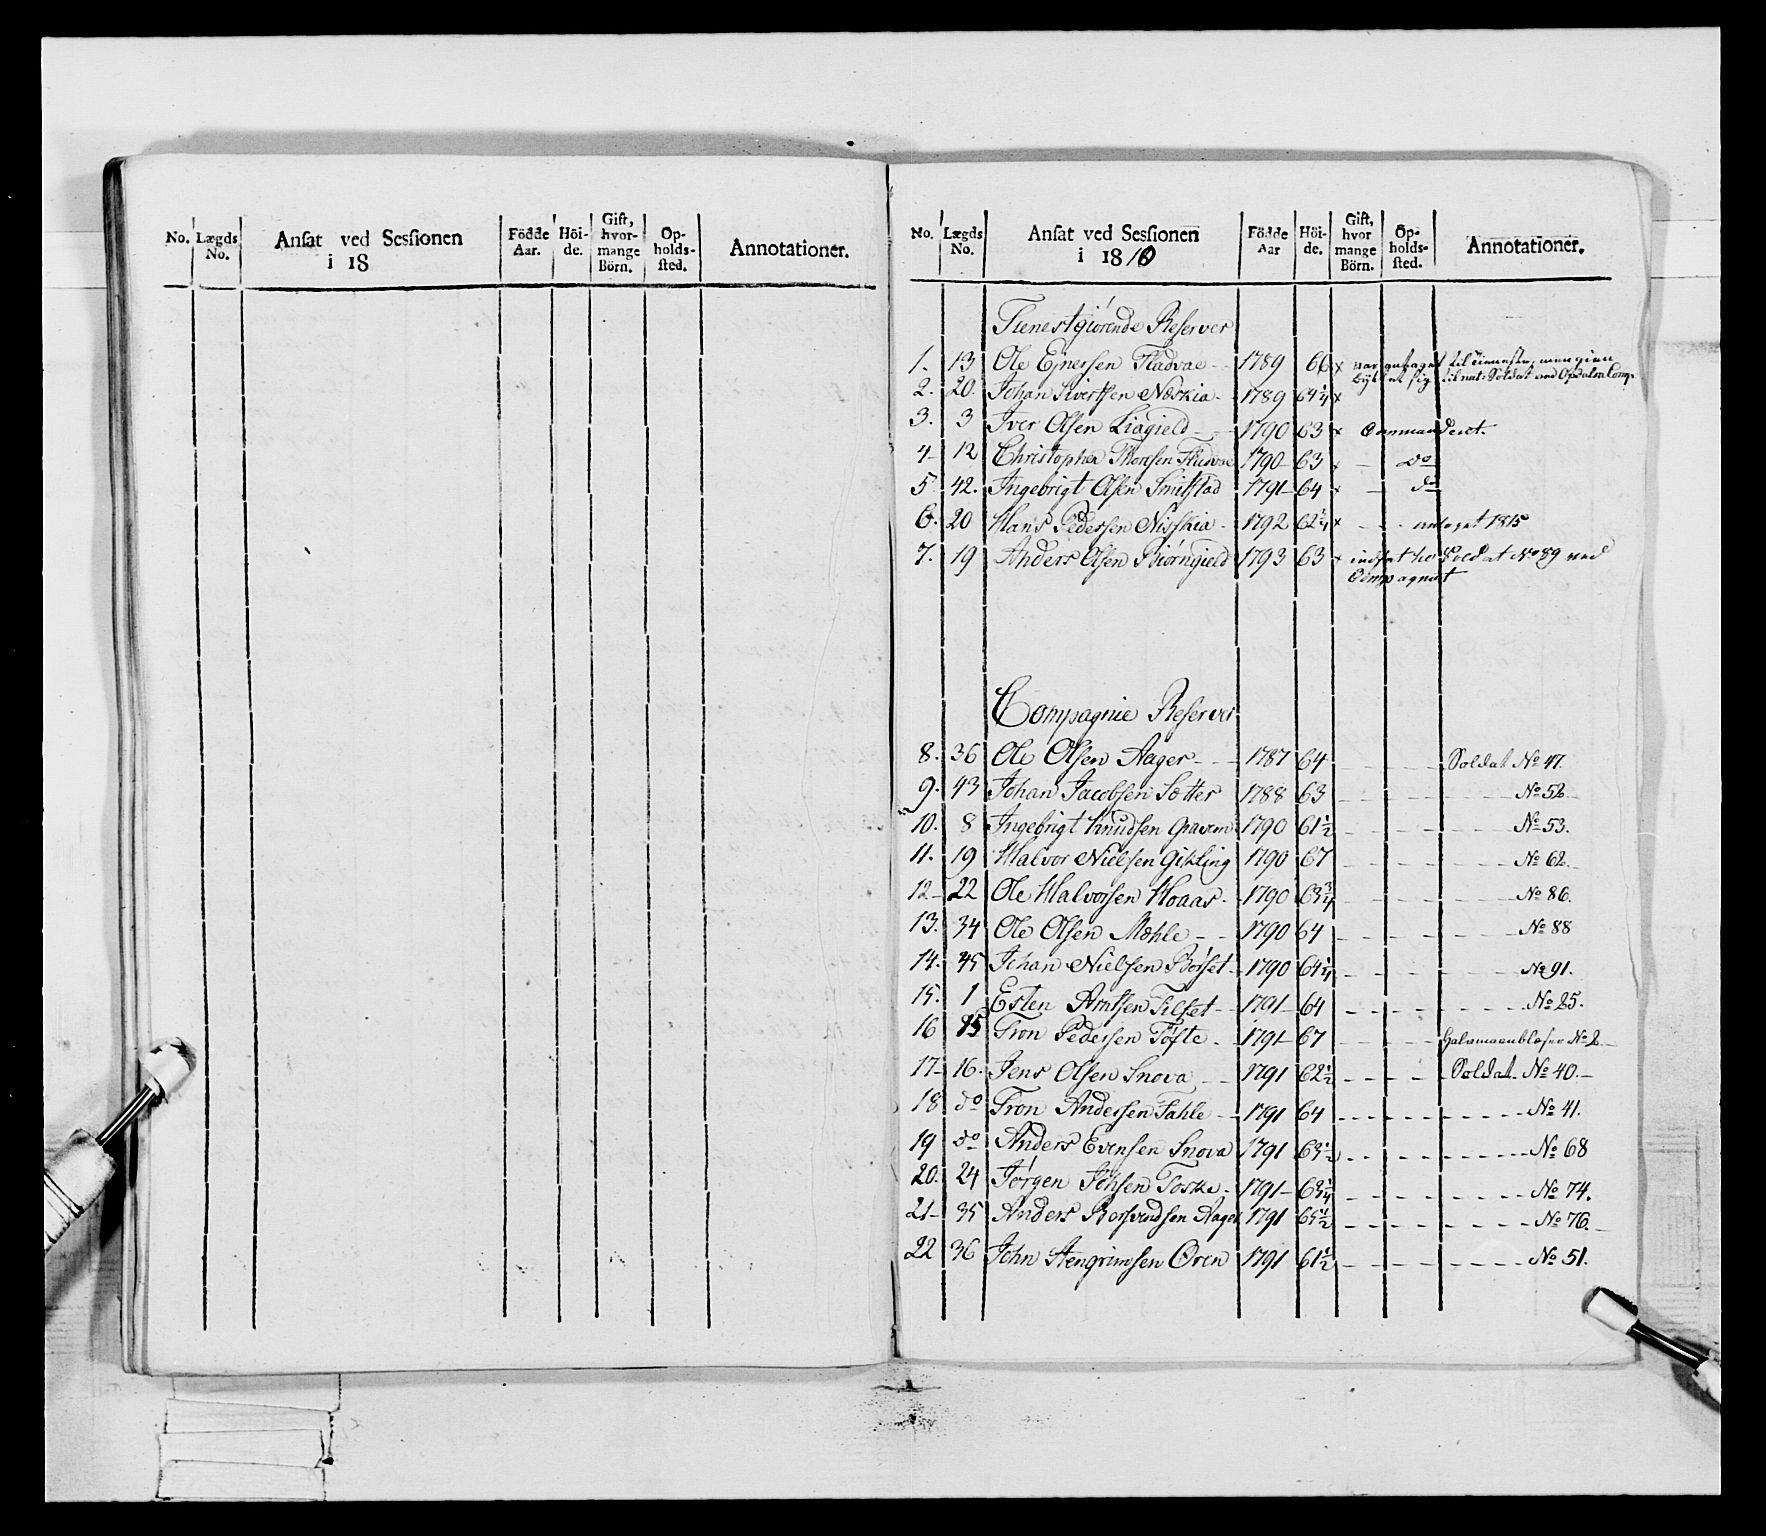 No. Lægds No. Ansat ved Sessionen i 18 Födde Aar. Höi-de. Gift, hvor-mange Börn. Op-holds-sted. Annotationer.
No. Lægds No. Ansat ved Sessionen i 1810 Födde Aar Höi-de. Gift, hvor mange Börn. Op-holds-sted. Annotationer.
Tienestgiørende Reserver
1. 13 Ole Ejnersen Fladvae 1789 66 x var antaget til Tieneste, men gien
byttet sig til nat: Soldat ved Opdalske Comp.
2. 20. Johan Sivertsen Næskia 1789 64 1/4 x
3. 3 Iver Olsen Liagield 1790 63 x Commanderet.
4 12 Christopher Thoresen Fladvae 1790 63 x — do
5 42. Ingebrigt Olsen Smisstad 1791 64 x — do
6. 20 Hans Pedersen Nisskia 1792 62 1/4 x antaget 1815
7. 19 Anders Olsen Biørngield 1793 63 x indsat som Soldat No 89 ved
Compagniet
Compagnie Reserver
8. 36 Ole Olsen Aager 1787 64 Soldat No 47.
9. 43 Johan Jacobsen Sætter 1788 63 No 52
10. 8 Ingebrigt Knudsen Gravem 1790 61 1/2 No 53.
11. 19 Halvor Nielsen Gikling 1790 67 No 62.
12 22 Ole Halvorsen Hoaas 1790 63 3/4 No 86.
13. 34 Ole Olsen Mæhle 1790 64 No 88
14. 45 Johan Nielsen Børset 1790 64 1/4 No 91.
15. 1 Esten Arntsen Filset 1791 64 No 25.
16 15 Tron Pedersen Tøfte 1791 67 Halvmaanblæser No 2
17 16. Jens Olsen Snova 1791 62 1/2 Soldat No 40.
18 do Tron Andersen Fahle 1791 64 No 41.
19 do Anders Evensen Snova 1791 63 1/2 No 68
20. 24 Jørgen Johsen Toske 1791 63 1/4 No 74.
21 35 Anders Aager 1791 65 1/2 No 76.
22 36 John Stengrimsen Øren 1791 61 1/2 No 51.